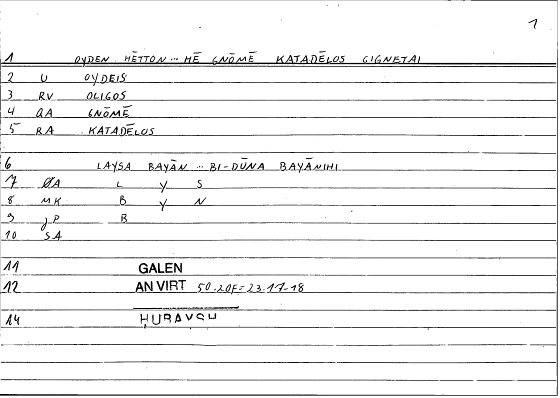 1
1 OYDEN HĒTTON ... HĒ GNŌMĒ KATADĒLOS GIGNETAI
2 U OYDEIS
3 RV OLIGOS
4 QA GNŌMĒ
5 RA KATADĒLOS
6 LAYSA BAYĀN ... BI-DŪNA BAYĀNIHI
7 ØA L Y S
8 MK B Y N
9 JP B
10 SA
11 GALEN
12 AN VIRT 50.20F = 23.17-18
14 ḤUBAYSH